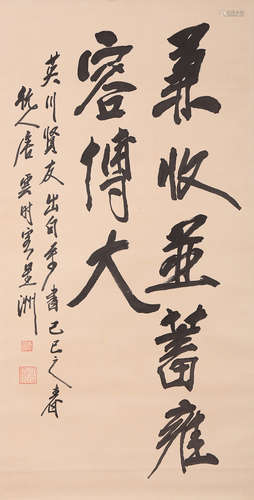 兼收並蓄雍
容博大
英川賢友出自車書己巳之春
杭人唐雲時客星洲